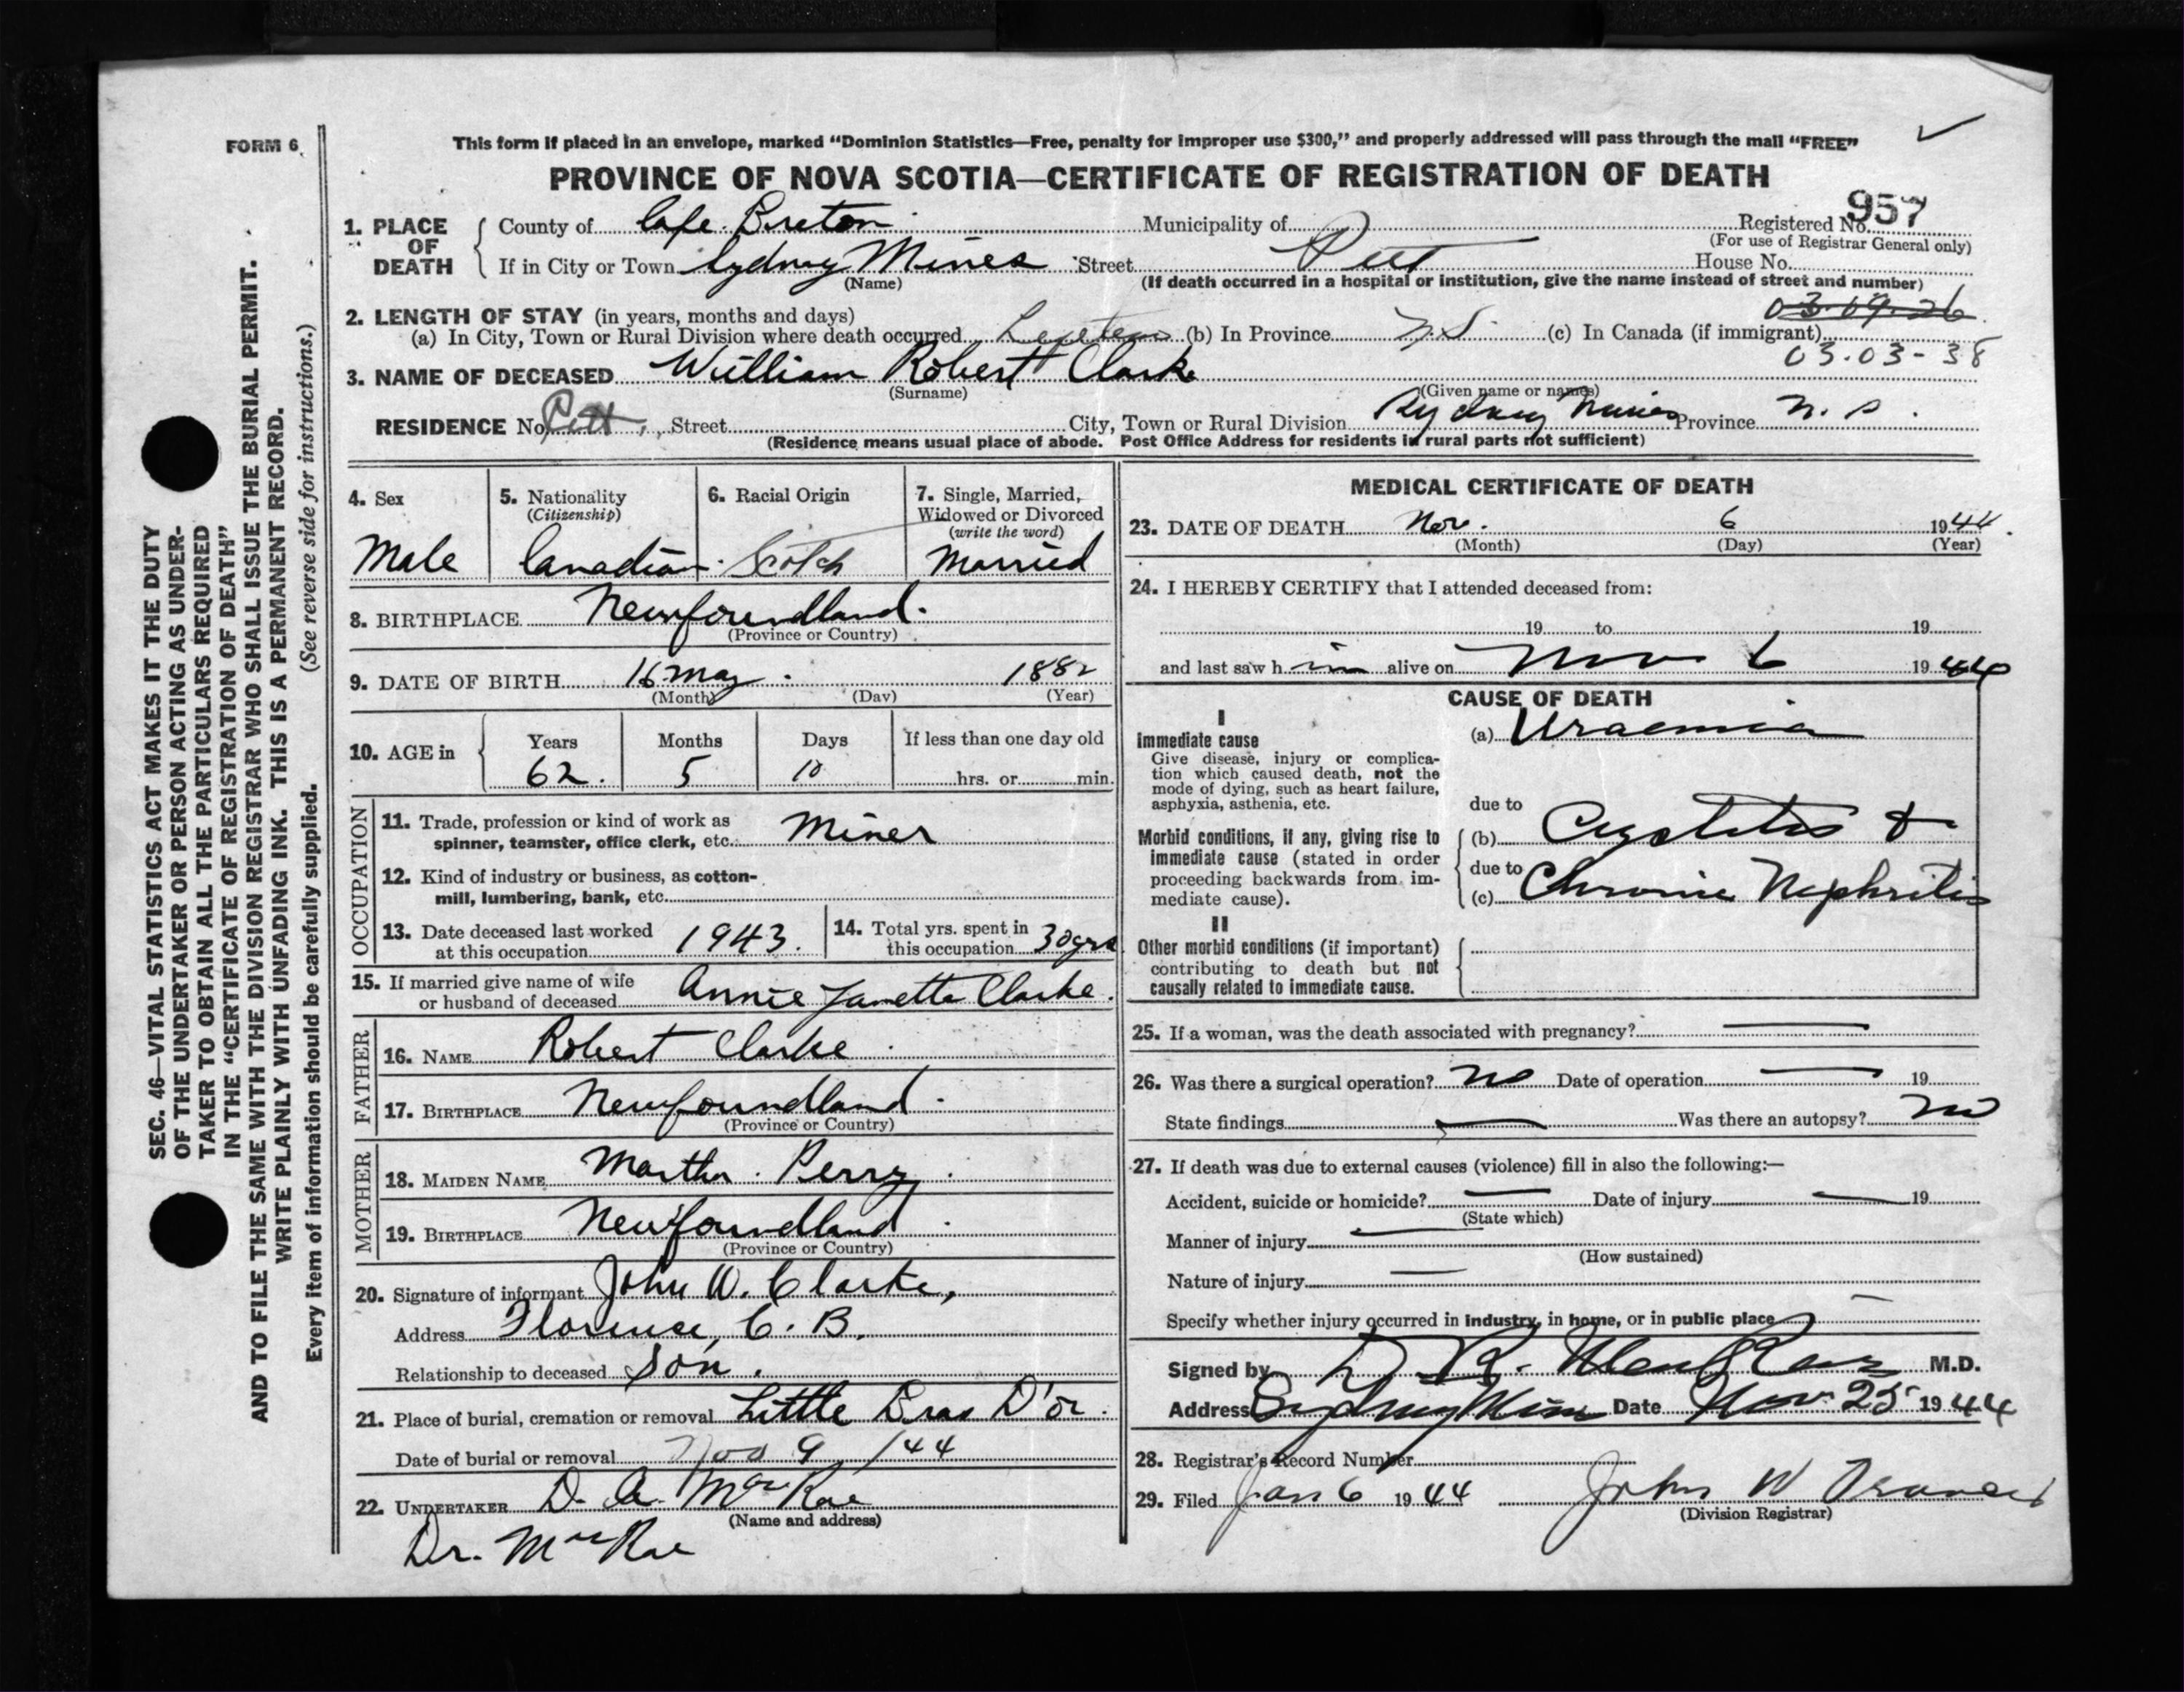 FORM 6
This form if placed in an envelope, marked “Dominion Statistics—Free, penalty for improper use $300,” and properly addressed will pass through the mail “FREE”
PROVINCE OF NOVA SCOTIA—CERTIFICATE OF REGISTRATION OF DEATH
957
1. PLACE OF DEATH
County of Cape Breton Municipality of Registered No.
(For use of Registrar General only)
If in City or Town Sydney Mines Street Pitt House No.
(Name) (If death occurred in a hospital or institution, give the name instead of street and number)
03.09.26
2. LENGTH OF STAY (in years, months and days)
(a) In City, Town or Rural Division where death occurred (b) In Province N.S. (c) In Canada (if immigrant)
03.03-38
3. NAME OF DECEASED William Robert Clarke
(Surname) (Given name or names)
RESIDENCE No. Pitt, Street City, Town or Rural Division Sydney Mines Province N.S.
(Residence means usual place of abode. Post Office Address for residents in rural parts not sufficient)
4. Sex
Male
5. Nationality
(Citizenship)
Canadian.
6. Racial Origin
Scotch
7. Single, Married,
Widowed or Divorced
(write the word)
Married
8. BIRTHPLACE Newfoundland.
(Province or Country)
9. DATE OF BIRTH 16 May. 1882
(Month) (Day) (Year)
10. AGE in
Years Months Days If less than one day old
62. 5 10 hrs. or min.
OCCUPATION
11. Trade, profession or kind of work as
spinner, teamster, office clerk, etc. Miner
12. Kind of industry or business, as cotton-
mill, lumbering, bank, etc.
13. Date deceased last worked
at this occupation 1943.
14. Total yrs. spent in
this occupation 30 yrs
15. If married give name of wife
or husband of deceased Annie Janette Clarke.
FATHER
16. NAME Robert Clarke
17. BIRTHPLACE Newfoundland.
(Province or Country)
MOTHER
18. MAIDEN NAME Martha Perry.
19. BIRTHPLACE Newfoundland.
(Province or Country)
20. Signature of informant John W. Clarke,
Address Florence, C. B.
Relationship to deceased Son.
21. Place of burial, cremation or removal Little Bras D'or.
Date of burial or removal Nov 9 /44
22. UNDERTAKER D. A. MacRae
(Name and address)
Dr. MacRae
MEDICAL CERTIFICATE OF DEATH
23. DATE OF DEATH Nov. 6 1944.
(Month) (Day) (Year)
24. I HEREBY CERTIFY that I attended deceased from:
19 to 19
and last saw h im alive on Nov 6 1944
CAUSE OF DEATH
I
Immediate cause
Give disease, injury or complica-
tion which caused death, not the
mode of dying, such as heart failure,
asphyxia, asthenia, etc.
(a) Uraemia
due to
Morbid conditions, if any, giving rise to
immediate cause (stated in order
proceeding backwards from im-
mediate cause).
(b) Cystitis &
due to
(c) Chronic Nephritis
II
Other morbid conditions (if important)
contributing to death but not
causally related to immediate cause.
25. If a woman, was the death associated with pregnancy? —
26. Was there a surgical operation? no Date of operation — 19
State findings — Was there an autopsy? no
27. If death was due to external causes (violence) fill in also the following:—
Accident, suicide or homicide? — Date of injury — 19
(State which)
Manner of injury —
(How sustained)
Nature of injury —
Specify whether injury occurred in industry, in home, or in public place —
Signed by D. R. MacRae M.D.
Address Sydney Mines Date Nov 25 1944
28. Registrar's Record Number
29. Filed Jan 6 1944 John W
(Division Registrar)
SEC. 46—VITAL STATISTICS ACT MAKES IT THE DUTY
OF THE UNDERTAKER OR PERSON ACTING AS UNDER-
TAKER TO OBTAIN ALL THE PARTICULARS REQUIRED
IN THE “CERTIFICATE OF REGISTRATION OF DEATH”
AND TO FILE THE SAME WITH THE DIVISION REGISTRAR WHO SHALL ISSUE THE BURIAL PERMIT.
WRITE PLAINLY WITH UNFADING INK. THIS IS A PERMANENT RECORD.
Every item of information should be carefully supplied. (See reverse side for instructions.)